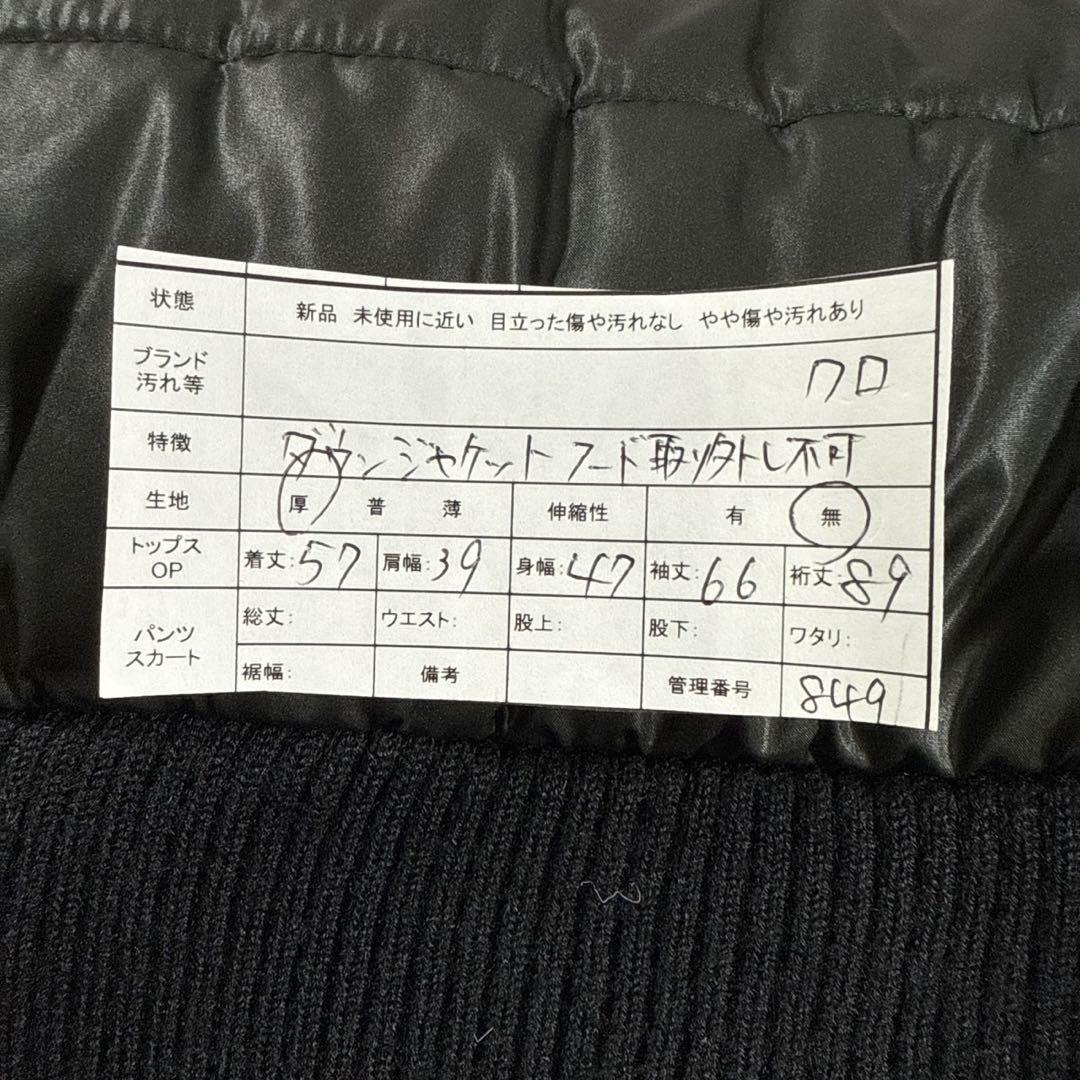 状態 新品 未使用に近い 目立った傷や汚れなし やや傷や汚れあり
ブランド
汚れ等
クロ
特徴 ダウンジャケット フード取り外し不可
生地 厚 普 薄 伸縮性 有 無
トップス
OP
着丈:57 肩幅:39 身幅:47 袖丈:66 裄丈:89
パンツ
スカート
総丈: ウエスト: 股上: 股下: ワタリ:
裾幅: 備考 管理番号 849